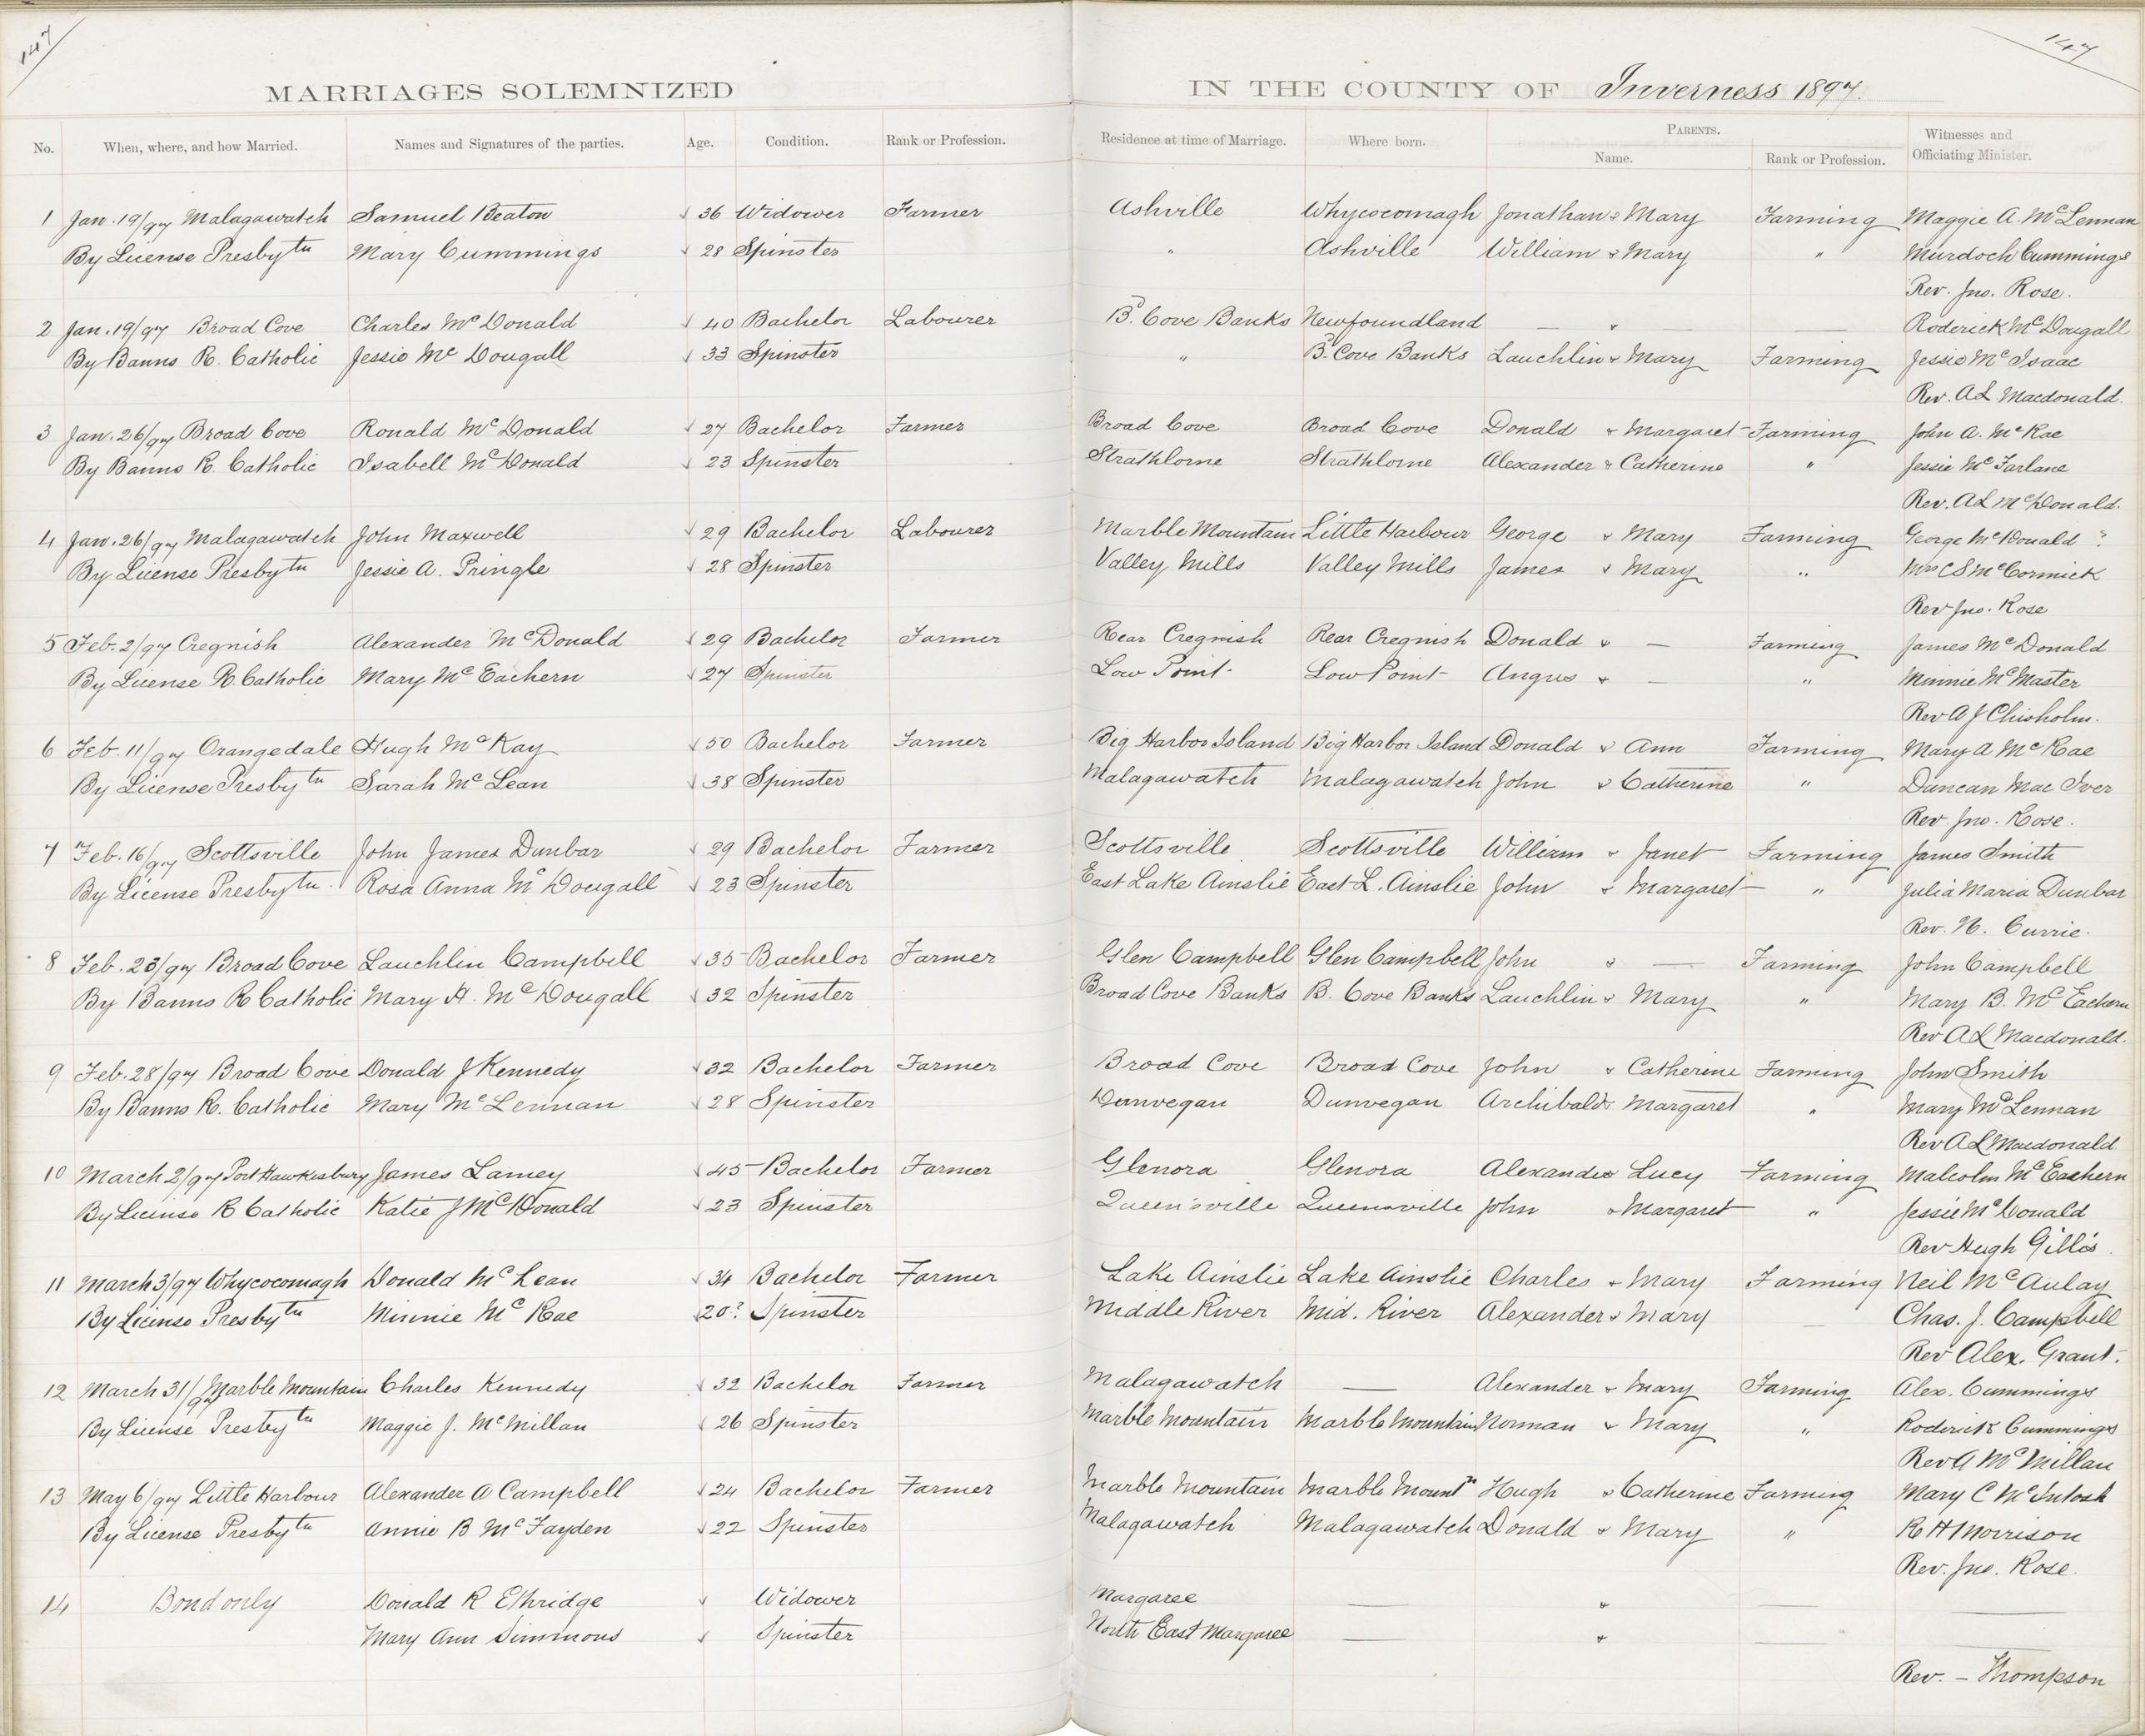 147
147
MARRIAGES SOLEMNIZED IN THE COUNTY OF Inverness 1897.
No. When, where, and how Married. Names and Signatures of the parties. Age. Condition. Rank or Profession. Residence at time of Marriage. Where born. PARENTS. Witnesses and Officiating Minister.
Name. Rank or Profession.
1 Jan. 19/97 Malagawatch Samuel Beaton √ 36 Widower Farmer Ashville Whycocomagh Jonathan & Mary Farming Maggie A. McLennan
By License Presbytn Mary Cummings √ 28 Spinster " Ashville William & Mary " Murdoch Cummings
Rev. Jno. Rose.
2 Jan. 19/97 Broad Cove Charles McDonald √ 40 Bachelor Labourer B. Cove Banks Newfoundland — & — — Roderick McDougall
By Banns R. Catholic Jessie McDougall √ 33 Spinster " B. Cove Banks Lauchlin & Mary Farming Jessie McIsaac
Rev. A L Macdonald.
3 Jan. 26/97 Broad Cove Ronald McDonald √ 27 Bachelor Farmer Broad Cove Broad Cove Donald & Margaret Farming John A. McRae
By Banns R. Catholic Isabell McDonald √ 23 Spinster Strathlorne Strathlorne Alexander & Catherine " Jessie McFarlane
Rev. A L McDonald.
4 Jan. 26/97 Malagawatch John Maxwell √ 29 Bachelor Labourer Marble Mountain Little Harbour George & Mary Farming George McDonald ?
By License Presbytn Jessie A. Pringle √ 28 Spinster Valley Mills Valley Mills James & Mary " Mrs C S McCormick
Rev Jno. Rose
5 Feb. 2/97 Cregnish Alexander McDonald √ 29 Bachelor Farmer Rear Cregnish Rear Cregnish Donald & — Farming James McDonald
By License R. Catholic Mary McEachern √ 27 Spinster Low Point Low Point Angus & — " Minnie McMaster
Rev A J Chisholm.
6 Feb. 11/97 Orangedale Hugh McKay √ 50 Bachelor Farmer Big Harbor Island Big Harbor Island Donald & Ann Farming Mary A McRae
By License Presbytn Sarah McLean √ 38 Spinster Malagawatch Malagawatch John & Catherine " Duncan MacIver
Rev. Jno. Rose.
7 Feb. 16/97 Scottsville John James Dunbar √ 29 Bachelor Farmer Scottsville Scottsville William & Janet Farming James Smith
By License Presbytn. Rosa Anna McDougall √ 23 Spinster East Lake Ainslie East L. Ainslie John & Margaret " Julia Maria Dunbar
Rev. N. Currie.
8 Feb. 23/97 Broad Cove Lauchlin Campbell √ 35 Bachelor Farmer Glen Campbell Glen Campbell John & — Farming John Campbell
By Banns R Catholic Mary A. McDougall √ 32 Spinster Broad Cove Banks B. Cove Banks Lauchlin & Mary " Mary B. McEachern
Rev A L Macdonald.
9 Feb. 28/97 Broad Cove Donald J Kennedy √ 32 Bachelor Farmer Broad Cove Broad Cove John & Catherine Farming John Smith
By Banns R. Catholic Mary McLennan √ 28 Spinster Dunvegan Dunvegan Archibald & Margaret " Mary McLennan
Rev A L Macdonald
10 March 2/97 Port Hawkesbury James Lamey √ 45 Bachelor Farmer Glenora Glenora Alexander & Lucy Farming Malcolm McEachern
By License R Catholic Katie J McDonald √ 23 Spinster Queensville Queensville John & Margaret " Jessie McDonald
Rev Hugh Gillis.
11 March 3/97 Whycocomagh Donald McLean √ 34 Bachelor Farmer Lake Ainslie Lake Ainslie Charles & Mary Farming Neil McAulay
By License Presbytn Minnie McRae √ 20? Spinster Middle River Mid. River Alexander & Mary — Chas. J. Campbell
Rev Alex. Grant.
12 March 31/97 Marble Mountain Charles Kennedy √ 32 Bachelor Farmer Malagawatch — Alexander & Mary Farming Alex. Cummings
By License Presbytn Maggie J. McMillan √ 26 Spinster Marble Mountain Marble Mountain Norman & Mary " Roderick Cummings
Rev A McMillan
13 May 6/97 Little Harbour Alexander A Campbell √ 24 Bachelor Farmer Marble Mountain Marble Mountn Hugh & Catherine Farming Mary C McIntosh
By License Presbytn Annie B McFayden √ 22 Spinster Malagawatch Malagawatch Donald & Mary " R H Morrison
Rev. Jno. Rose.
14 Bond only Donald R Ethridge √ Widower Margaree — & — —
Mary Ann Simmons √ Spinster North East Margaree — & — —
Rev. — Thompson